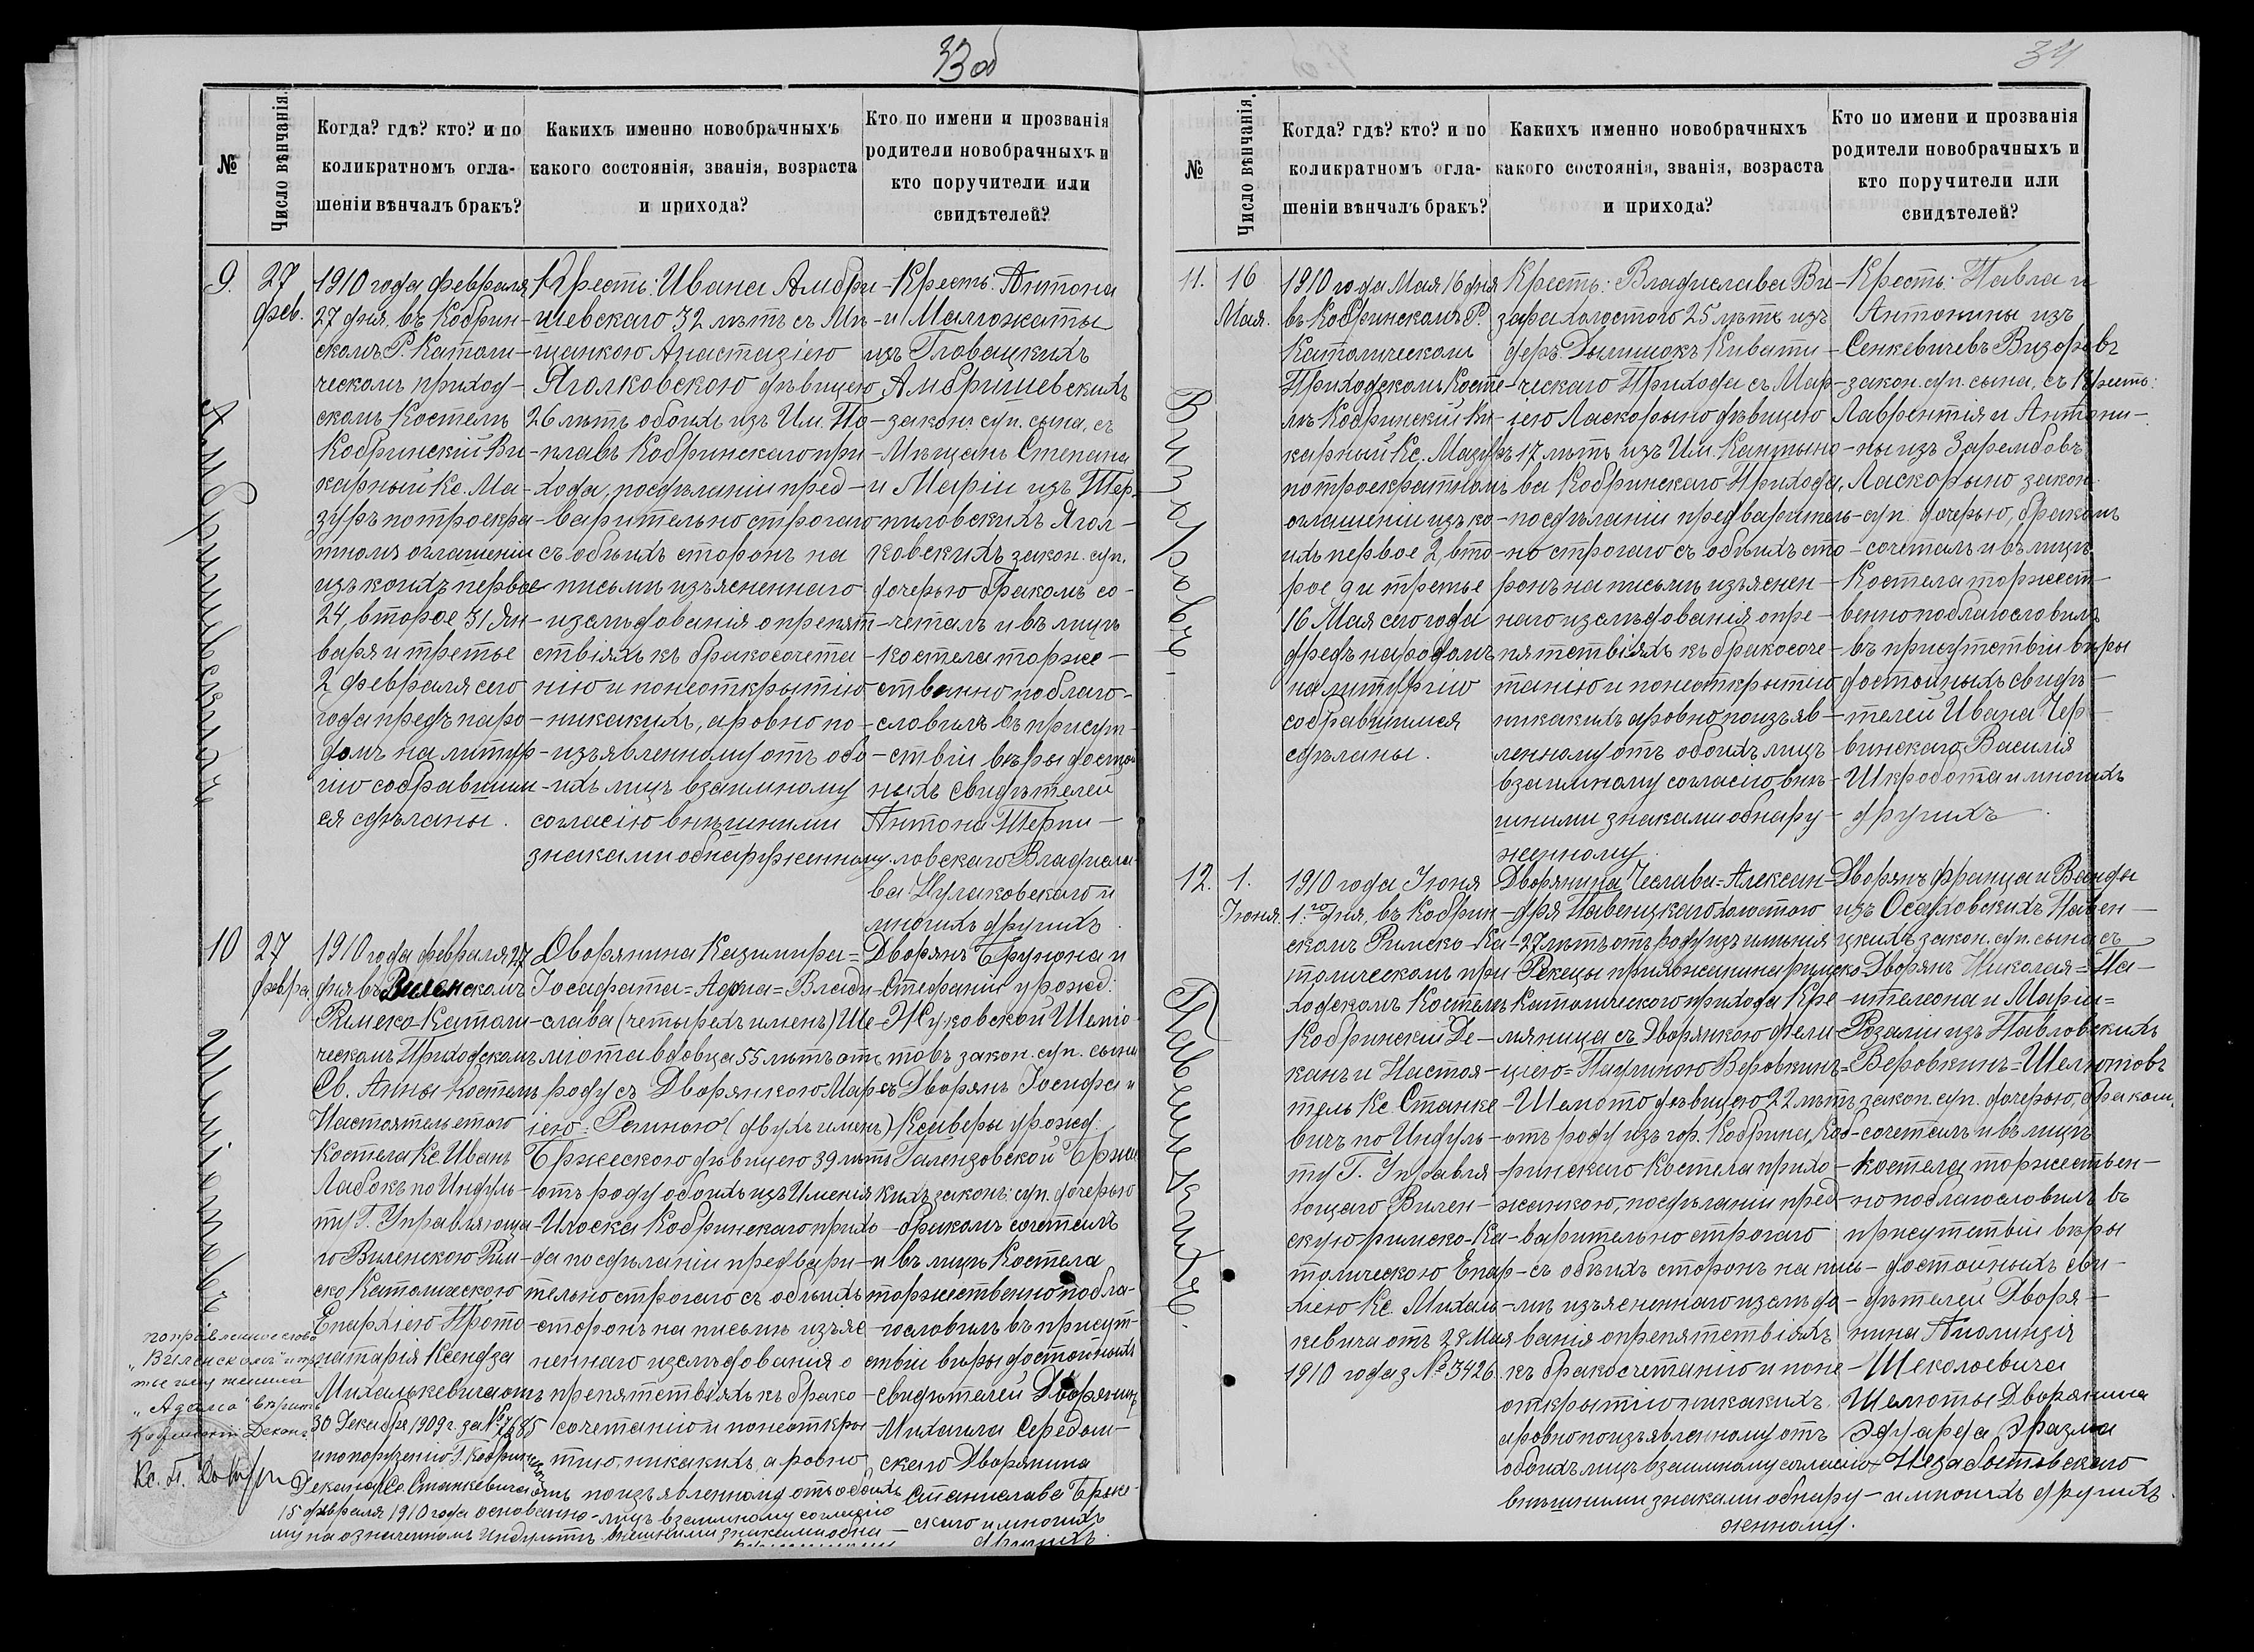 33 об
№
Число вѣнчанія.
Когда? гдѣ? кто? и по
коликратномъ огла-
шеніи вѣнчалъ бракъ?
Какихъ именно новобрачныхъ
какого состоянія, званія, возраста
и прихода?
Кто по имени и прозванія
родители новобрачныхъ и
кто поручители или
свидѣтелей?
9.
27
фев.
Амбришевскихъ
1910 года февраля
27 дня, въ Кобрин-
скомъ Р. Католи-
ческомъ приход-
скомъ Костелѣ
Кобринскій Ви-
карный Кс. Ма-
зуръ по троекра-
тномъ оглашеніи
изъ коихъ первое
24, второе 31 Ян-
варя и третье
2 февраля сего
года предъ наро-
домъ на литур-
гію собравшим-
ся сдѣланы.
Крестъ: Ивана Амбри-
шевскаго 32 лѣтъ съ Мѣ-
щанкою Анастазіею
Яголковскою дѣвицею
26 лѣтъ обоихъ изъ Им. По-
плавъ Кобринскаго при-
хода, по сдѣланіи пред-
варительно строгаго
съ обѣихъ сторонъ на
письмѣ изъясненнаго
изслѣдованія о препят-
ствіяхъ къ бракосочета-
нію и по неоткрытію
никакихъ, а ровно по
изъявленному отъ обо-
ихъ лицъ взаимному
согласію внѣшними
знаками обнаруженному.
Крестъ: Антона
и Малгожаты
изъ Гловацкихъ
Амбришевскихъ
закон. суп. сына, съ
Мѣщанъ Степана
и Маріи изъ Шер-
пиловскихъ Ягол-
ковскихъ закон. суп.
дочерью бракомъ со-
четалъ и въ лицѣ
костела торже-
ственно поблаго-
словилъ въ присут-
ствіи вѣры достой
ныхъ свидѣтелей
Антона Шерпи-
ловскаго Владисла-
ва Кулаковскаго и
многихъ другихъ.
10
27
февра.
Шеміотовъ
1910 года февраля 27
дня въ Виленскомъ
Римско-Католи-
ческомъ Приходскомъ
Св. Анны Костелѣ
Настоятель этого
Костела Кс. Иванъ
Лабокъ по Индуль-
ту Г. Управляюща-
го Виленскою Рим-
ско Католическою
Епархіею Прото-
натарія Ксендза
Михалькевича отъ
30 Декабря 1909 г. за № 7685
и по порученію Г. Кобринскаго
Декана Кс. Станкевича отъ
15 февраля 1910 года основанно-
му на означенномъ Индультѣ
Дворянина Казимира=
Іосафата=Адама=Влади-
слава (четырехъ именъ) Ше-
міота вдовца 55 лѣтъ отъ
роду съ Дворянкою Мар-
іею=Региною (двухъ именъ)
Бржескою дѣвицею 39 лѣтъ
отъ роду обоихъ изъ Имѣнія
Илоска Кобринскаго прихо-
да по сдѣланіи предвари-
тельно строгаго съ обѣихъ
сторонъ на письмѣ изъяс-
неннаго изслѣдованія о
препятствіяхъ къ брако-
сочетанію и по неоткры-
тію, никакихъ, а ровно
по изъявленному отъ обоихъ
лицъ взаимному согласію
внѣшними знаками обна-
Дворянъ Брунона и
Стефаніи урожд:
Жуковской Шеміо-
товъ закон. суп. сына
съ Дворянъ Іосифа и
Ксаверы урожд.
Галензовской Брже
кихъ закон: суп. дочерью
бракомъ сочеталъ
и въ лицѣ Костела
торжественно побла-
гословилъ въ присут-
ствіи вѣры достойныхъ
свидѣтелей Дворянинъ
Михаила Середин-
скаго Дворянина
Станислава Брже-
скаго и многихъ
другихъ.
поправленное слово
„Виленскомъ" и тре
тье имя жениха
„Адама" вѣрить
Кобринскій Деканъ
34
№
Число вѣнчанія.
Когда? гдѣ? кто? и по
коликратномъ огла-
шеніи вѣнчалъ бракъ?
Какихъ именно новобрачныхъ
какого состоянія, званія, возраста
и прихода?
Кто по имени и прозванія
родители новобрачныхъ и
кто поручители или
свидѣтелей?
11.
16
Мая.
Визоровъ
1910 года Мая 16 дня
въ Кобринскомъ Р.
Католическомъ
Приходскомъ Косте-
лѣ Кобринскій Ви-
карный Кс. Мазуръ
по троекратномъ
оглашеніи изъ ко-
ихъ первое 2, вто-
рое 9 и третье
16 Мая сего года
предъ народомъ
на литургію
собравшимся
сдѣланы.
Крестъ: Владислава Ви-
зора холостого 25 лѣтъ изъ
дер: Дылишокъ Кивати-
ческаго Прихода съ Мар-
іею Ласкорыно дѣвицею
17 лѣтъ изъ Им. Кантыно-
ва Кобринскаго Прихода,
по сдѣланіи предваритель-
но строгаго съ обѣихъ сто-
ронъ на письмѣ изъяснен-
наго изслѣдованія о пре-
пятствіяхъ къ бракосоче-
танію и по неоткрытію
никакихъ а ровно по изъяв-
ленному отъ обоихъ лицъ
взаимному согласію внѣ-
шними знаками обнару-
женному.
Крестъ: Павла и
Антонины изъ
Сенкевичевъ Визоровъ
закон. суп. сына, съ Крестъ:
Лаврентія и Антони-
ны изъ Зарембовъ
Ласкорыно закон.
суп. дочерью, бракомъ
сочеталъ и въ лицѣ
Костела торжест-
венно поблагословилъ
въ присутствіи вѣры
достойныхъ свидѣ-
телей Ивана Чер-
винскаго, Василія
Шкробота и многихъ
другихъ.
12.
1.
Іюня.
Павенцкихъ.
1910 года Іюня
1.го дня, въ Кобрин-
скомъ Римско-Ка-
толическомъ при-
ходскомъ Костелѣ
Кобринскій Де-
канъ и Настоя-
тель Кс. Станке-
вичъ по Индуль-
ту Г. Управля-
ющаго Вилен-
скую римско-Ка-
толическою Епар-
хіею Кс. Михаль-
кевича отъ 28 Мая
1910 года з № 3426.
Дворянина Чеслава=Алексан-
дра Павенцкаго холостого
27 лѣтъ отъ роду изъ имѣнія
Рекецы прихожанина римско-
Католическаго прихода Кре-
мяница съ Дворянкою Фели-
ціею=Паулиною Веровкинъ=
Шемото дѣвицею 22 лѣтъ
отъ роду изъ гор. Кобрина, Коб-
ринскаго Костела прихо-
жанкою, по сдѣланіи пред-
варительно строгаго
съ обѣихъ сторонъ на пись-
мѣ изъясненнаго изслѣдо-
ванія о препятствіяхъ
къ бракосочетанію и по не-
открытію никакихъ,
а ровно по изъявленному отъ
обоихъ лицъ взаимному согласію
внѣшними знаками обнару-
женному.
Дворянъ Франца и Ванды
изъ Осаховскихъ Павен-
цкихъ закон. суп. сына съ
Дворянъ Николая=Па-
нтелеона и Маріи=
Розаліи изъ Павловскихъ
Веровкинъ=Шемотовъ
закон. суп. дочерью, бракомъ
сочеталъ и въ лицѣ
костела торжествен-
но поблагословилъ въ
присутствіи вѣры
достойныхъ сви-
дѣтелей Дворя-
нина
Шемоты Дворянина
Эдуарда Эразма
Незабытовскаго
и многихъ другихъ.